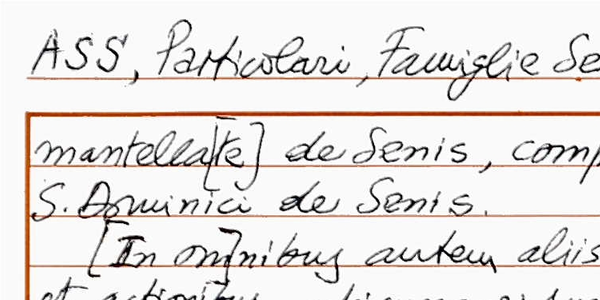 ASS, Particolari, Famiglie Se
mantella[te] de Senis, comp
S. Dominici de Senis.
[In om]nibus autem aliis
et actionibus